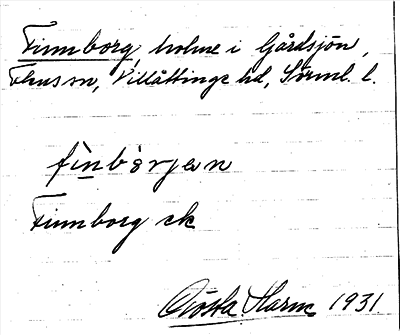 Finnborg, holme i Gårdsjön,
Flens sn, Villåttinge hd, Sörml. l.
fìnbòrjen
Finnborg ek
Gösta Harm 1931